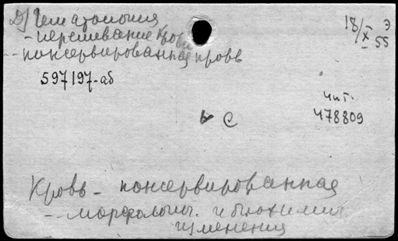 Д) Гематология
- переливание крови
- консервированная кровь
18/X э
55
597197-аб
чит.
478809
с
Кровь - консервированная
- морфологич. и биохимич.
изменения